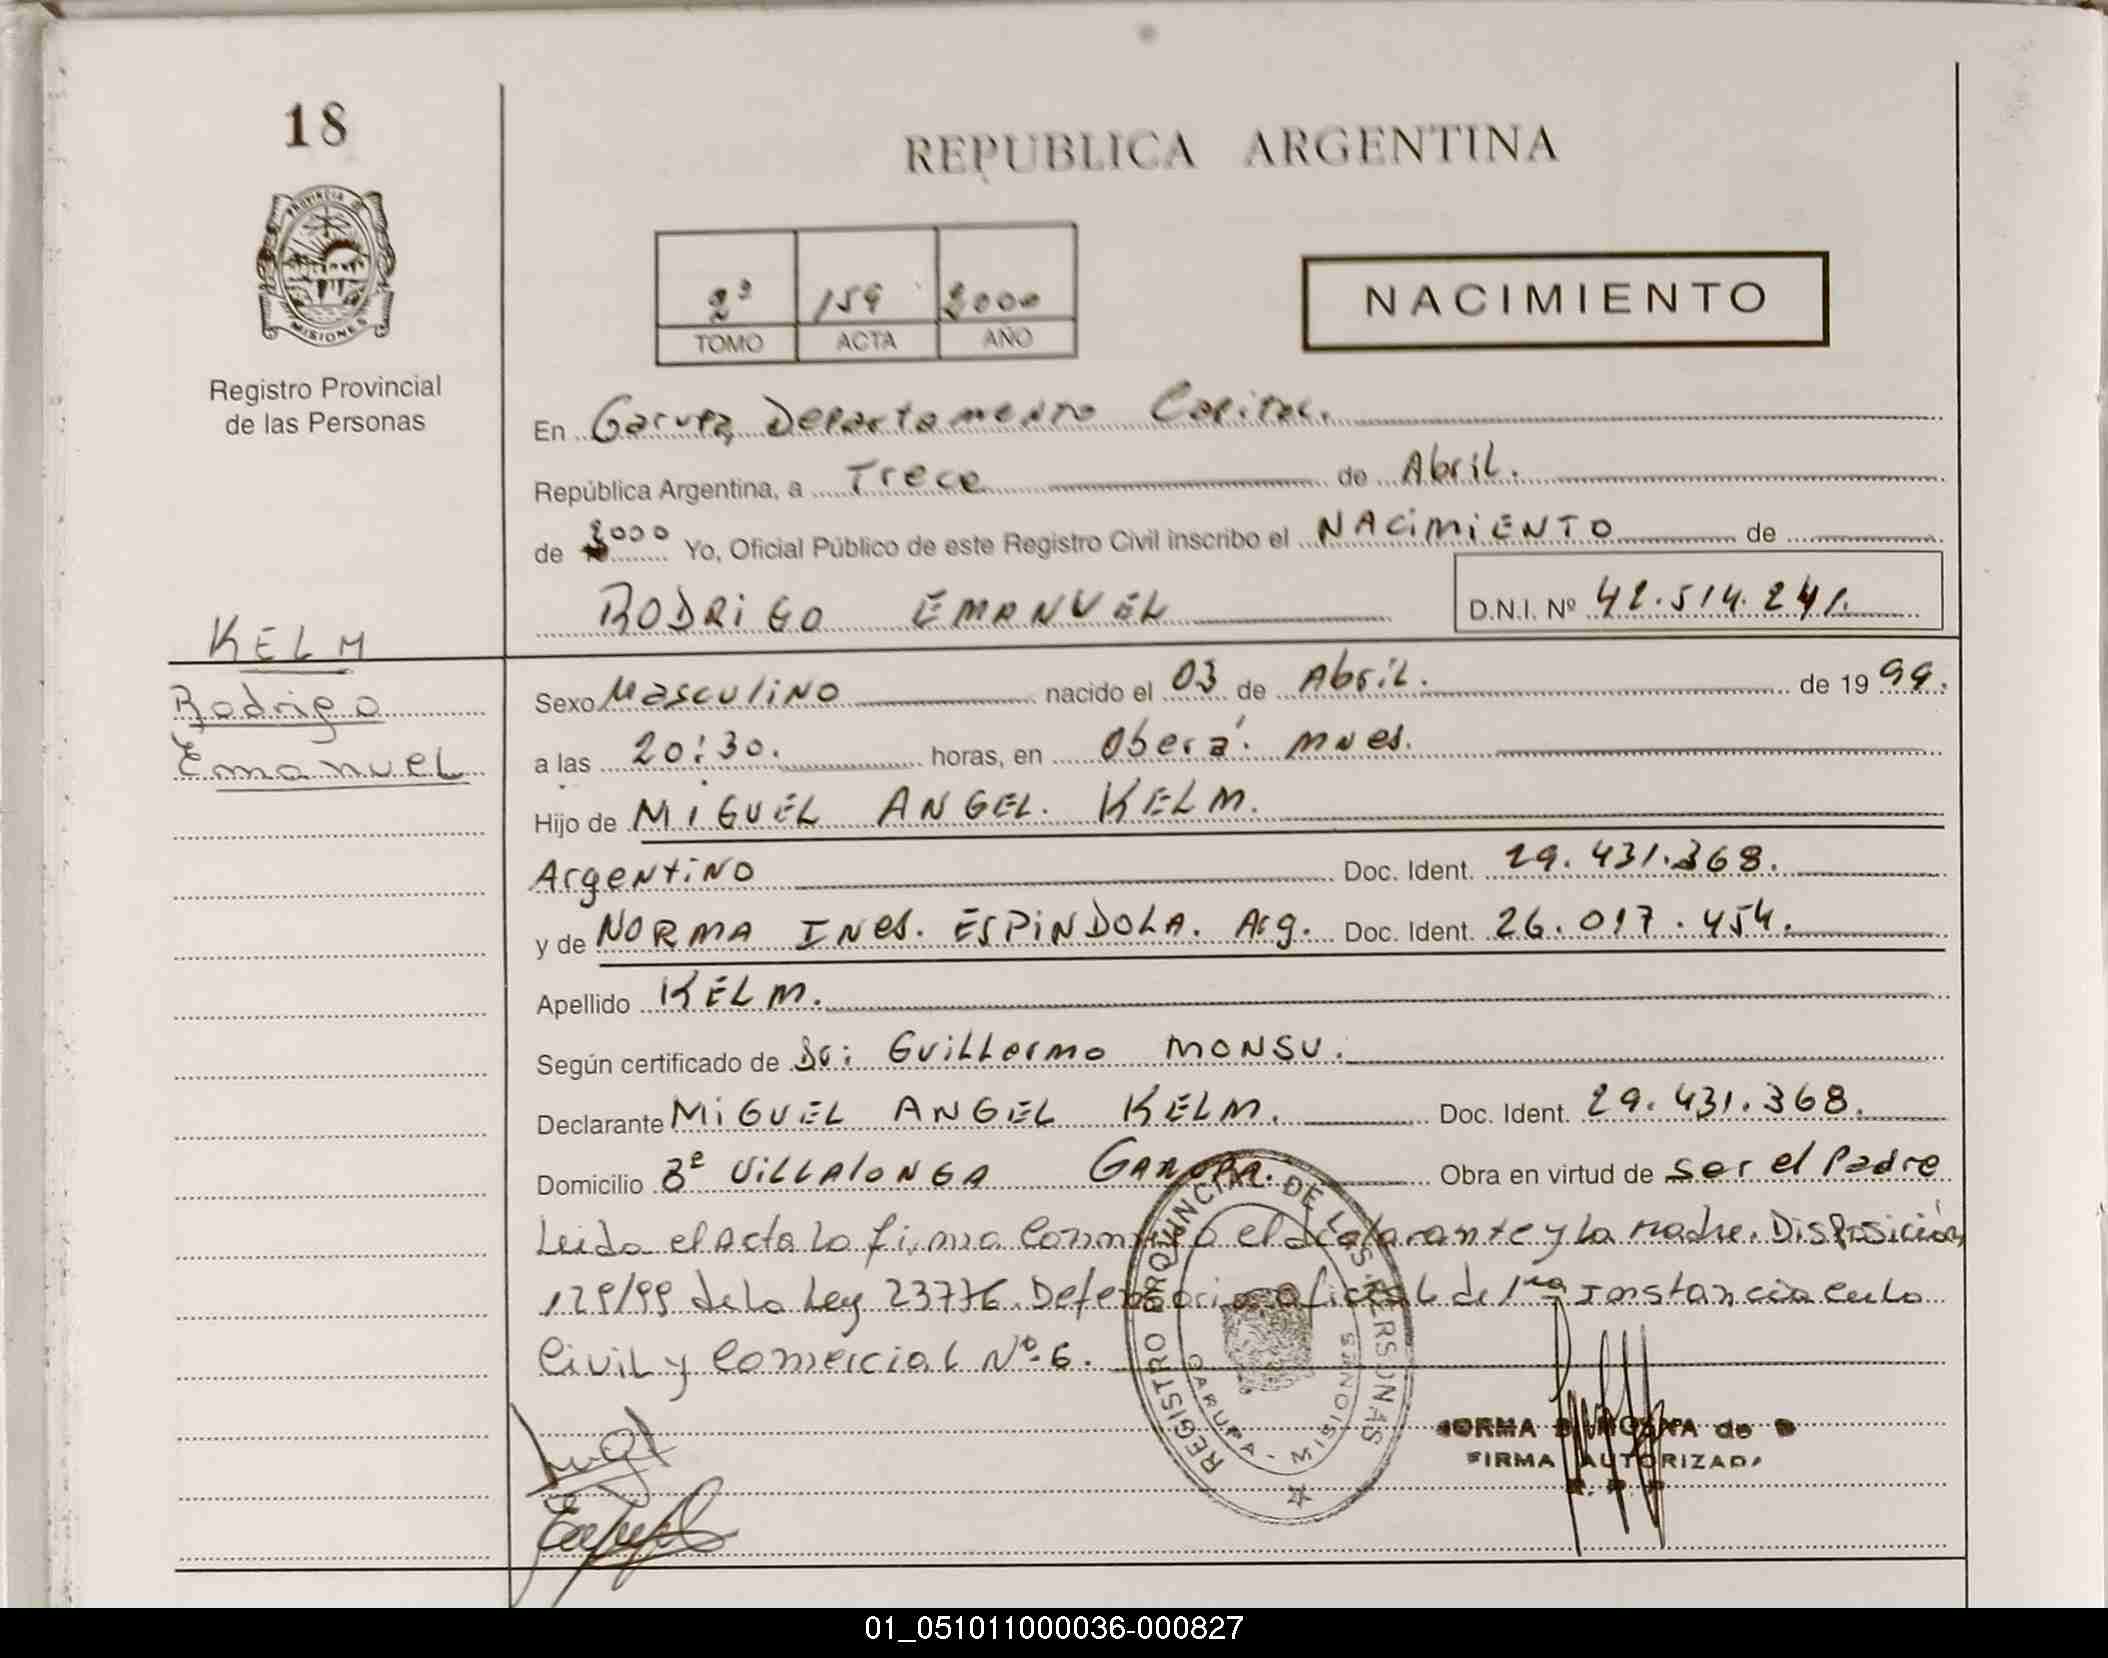 18
PROVINCIA D
MISIONES
Registro Provincial
de las Personas
REPUBLICA ARGENTINA
2º 159 2000
TOMO ACTA AÑO
NACIMIENTO
En Garupa, Departamento Capital.
República Argentina, a Trece de Abril.
de 2000 Yo, Oficial Público de este Registro Civil inscribo el NACIMIENTO de
RODRIGO EMANUEL D.N.I. Nº 42.514.241.
KELM
Rodrigo
Emanuel
Sexo Masculino nacido el 03 de Abril. de 1999.
a las 20:30. horas, en Oberá. Mnes.
Hijo de MIGUEL ANGEL. KELM.
Argentino Doc. Ident. 29.431.368.
y de NORMA INES. ESPINDOLA. Arg. Doc. Ident. 26.017.454.
Apellido KELM.
Según certificado de Dr: Guillermo MONSU.
Declarante MIGUEL ANGEL KELM. Doc. Ident. 29.431.368.
Domicilio Bº VILLALONGA GARUPA. Obra en virtud de ser el Padre
Leida el acta la firma conmigo el declarante y la madre. Disposición
129/99 de la Ley 23776. Defensoria oficial de 1ra Instancia en lo
Civil y Comercial Nº 6.
REGISTRO PROVINCIAL DE LAS PERSONAS
GARUPA - MISIONES
NORMA de
FIRMA AUTORIZADA
01_051011000036-000827